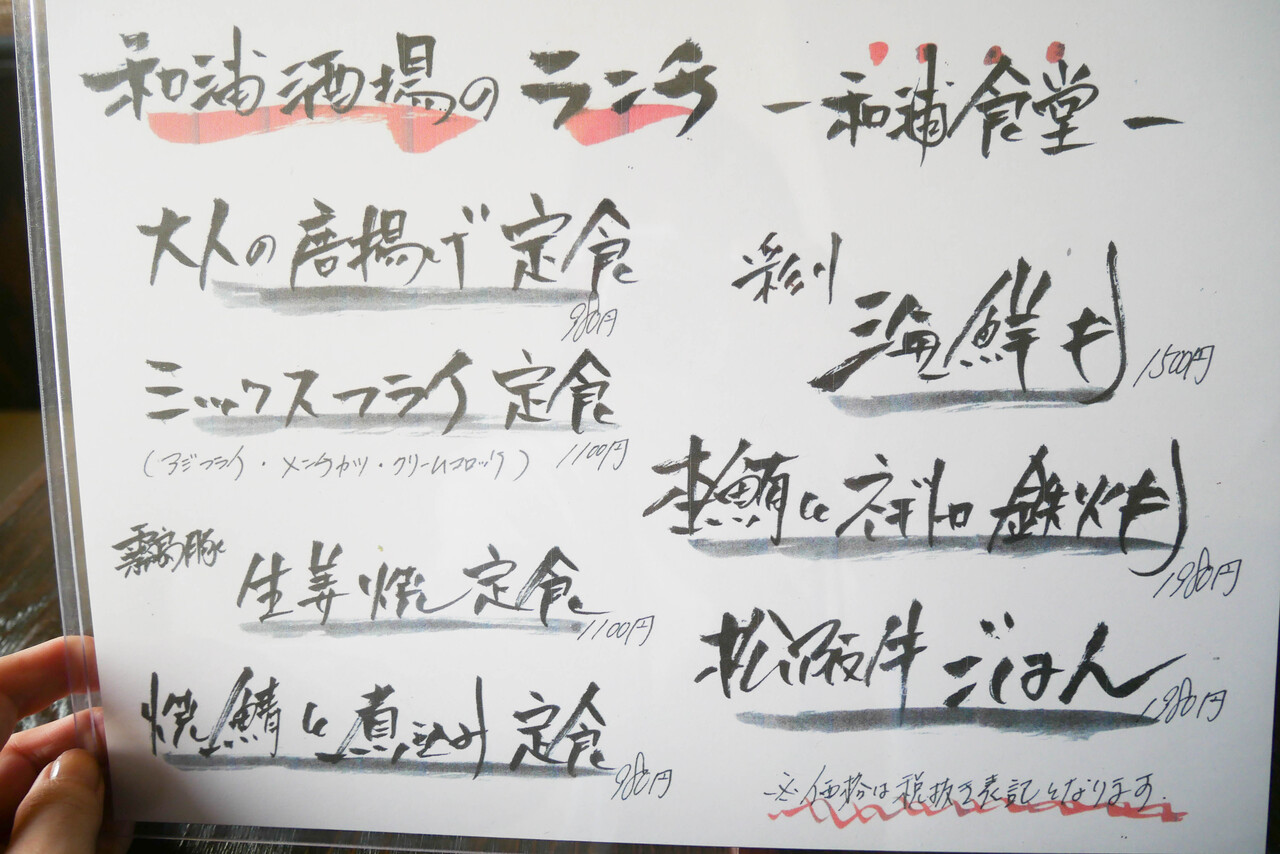 和浦酒場のランチ
ー和浦食堂ー
大人の唐揚げ定食
980円
ミックスフライ定食
(アジフライ・メンチカツ・クリームコロッケ) 1100円
霧島豚
生姜焼定食
1100円
焼鯖と煮込み定食
980円
彩り
海鮮丼
1500円
本鮪とネギトロ鉄火丼
1980円
松阪牛ごはん
1980円
※価格は税抜き表記となります。